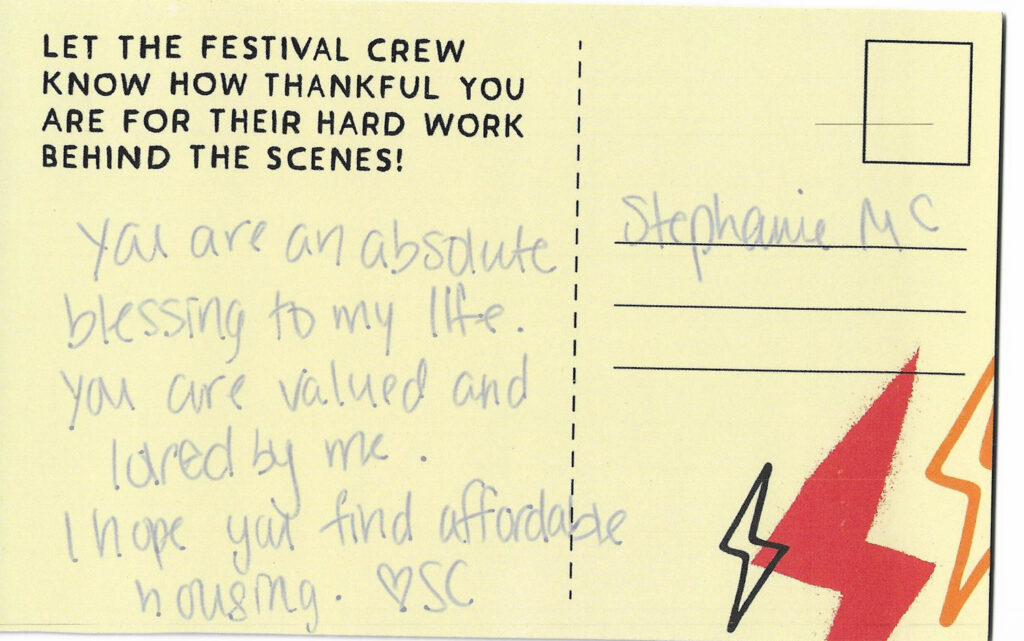 LET THE FESTIVAL CREW
KNOW HOW THANKFUL YOU
ARE FOR THEIR HARD WORK
BEHIND THE SCENES!
Stephanie MC
You are an absolute
blessing to my life.
you are valued and
loved by me.
I hope you find affordable
housing. ♡SC